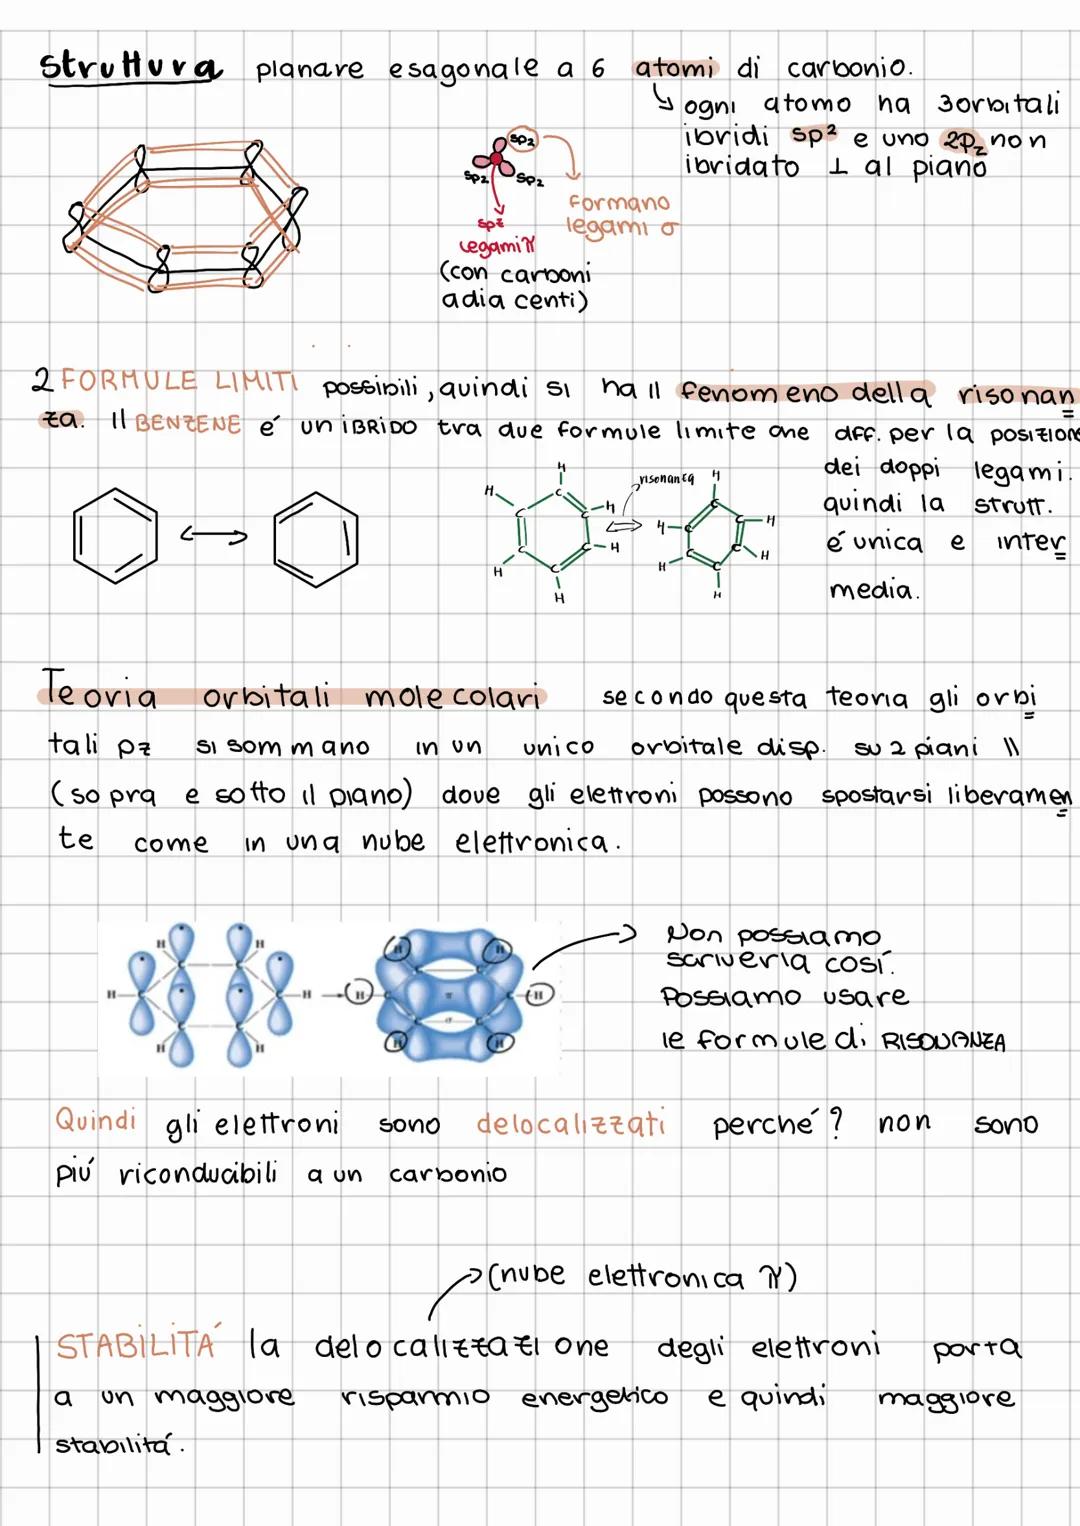 struttura planare esagonale a 6 atomi di carbonio.
↳ ogni atomo ha 3 orbitali
ibridi sp² e uno 2pz non
ibridato ⊥ al piano
sp2
sp2
sp2
formano
legami σ
legami π
(con carboni
adiacenti)
2 FORMULE LIMITI possibili, quindi si ha il fenomeno della risonan
za. Il BENZENE é un iBRiDO tra due formule limite che diff. per la posizione
dei doppi legami.
quindi la strutt.
é unica e inter
media.
risonanza
H H H H H H
C C C C C C
H H H H H H
C C C C C C
Teoria orbitali molecolari secondo questa teoria gli orbi
tali pz si sommano in un unico orbitale disp. su 2 piani \\
(sopra e sotto il piano) dove gli elettroni possono spostarsi liberamen
te come in una nube elettronica.
H H H H H H
H H H H H H
π
σ
Non possiamo
scriverla cosí.
Possiamo usare
le formule di RISONANZA
Quindi gli elettroni sono delocalizzati perché? non sono
piú riconducibili a un carbonio
(nube elettronica π)
STABiLiTÁ la delocalizzazione degli elettroni porta
a un maggiore risparmio energetico e quindi maggiore
stabilitá.